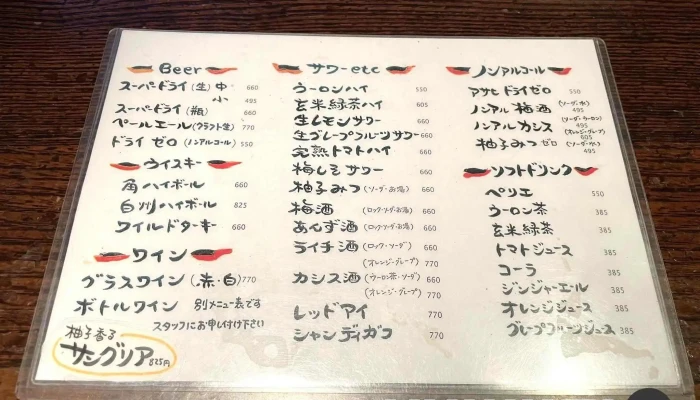 Beer
スーパードライ(生) 中 660
小 495
スーパードライ(瓶) 660
ペールエール(クラフト生) 770
ドライ ゼロ(ノンアルコール) 550
ウイスキー
角ハイボール 660
白州ハイボール 825
ワイルドターキー 660
ワイン
グラスワイン(赤・白) 770
ボトルワイン 別メニュー表です
スタッフにお申し付け下さい
柚子香る
サングリア 825円
サワーetc
ウーロンハイ 550
玄米緑茶ハイ 605
生レモンサワー 660
生グレープフルーツサワー 660
完熟トマトハイ 660
梅しそサワー 660
柚子みつ(ソーダ・お湯) 660
梅酒(ロック・ソーダ・お湯) 660
あんず酒(ロック・ソーダ・お湯) 660
ライチ酒(ロック・ソーダ) 660
(オレンジ・グレープ) 770
カシス酒(ウーロン茶・ソーダ) 660
(オレンジ・グレープ) 770
レッドアイ 770
シャンディガフ 770
ノンアルコール
アサヒ ドライゼロ 550
ノンアル 梅酒(ソーダ・水) 495
ノンアル カシス(ソーダ・ウーロン) 495
(オレンジ・グレープ) 605
柚子みつ ゼロ(ソーダ・水) 495
ソフトドリンク
ペリエ 550
ウーロン茶 385
玄米緑茶 385
トマトジュース 385
コーラ 385
ジンジャーエール 385
オレンジジュース 385
グレープフルーツジュース 385